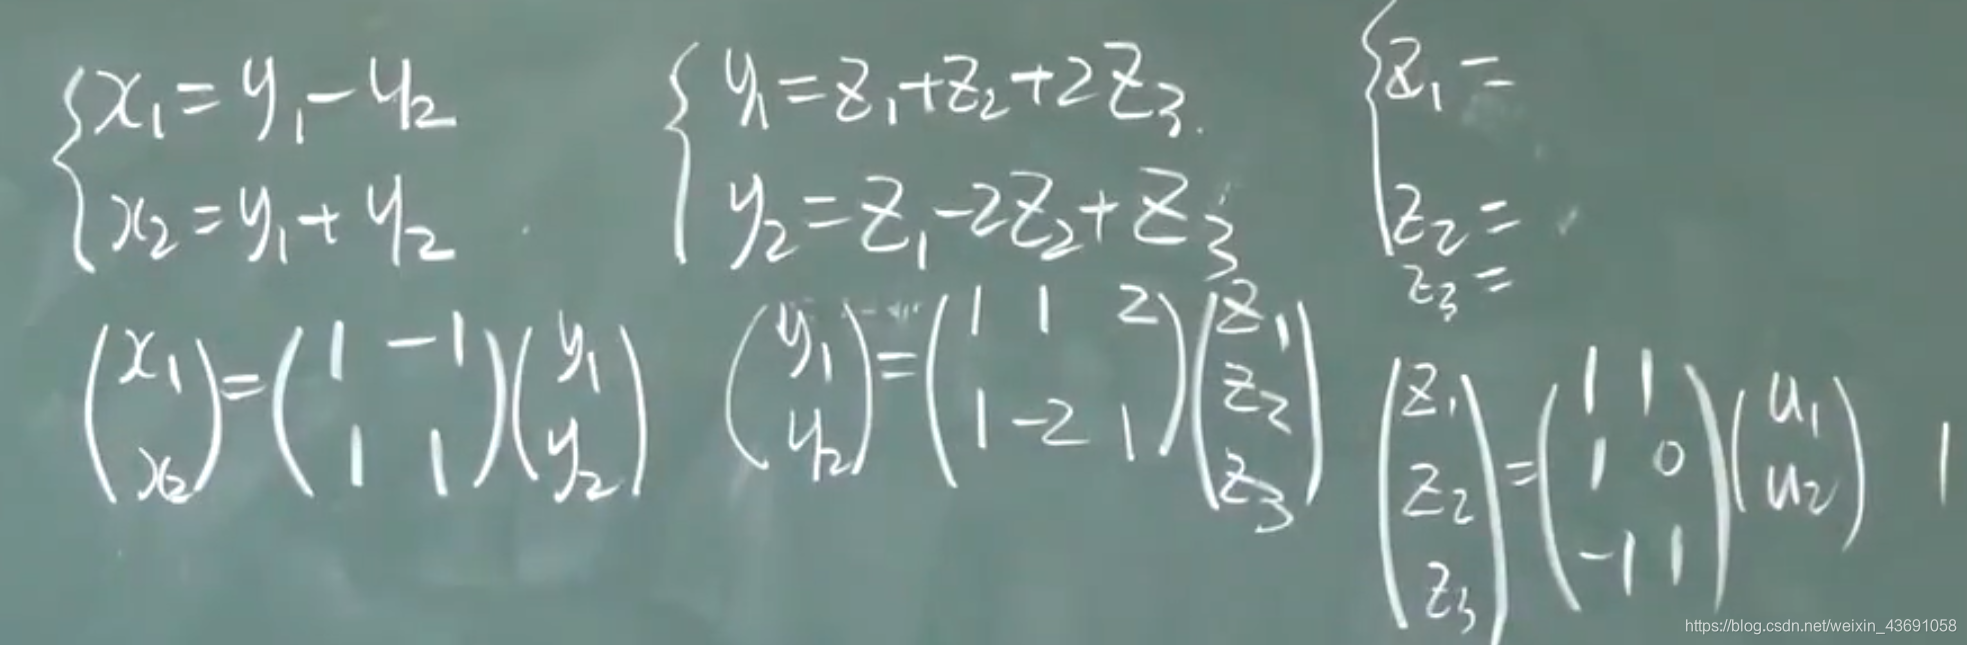 x₁ = y₁ - y₂
x₂ = y₁ + y₂
y₁ = z₁ + z₂ + 2z₃.
y₂ = z₁ - 2z₂ + z₃
z₁ =
z₂ =
z₃ =
(x₁ x₂) = (1 -1 1 1)(y₁ y₂)
(y₁ y₂) = (1 1 2 1 -2 1)(z₁ z₂ z₃)
(z₁ z₂ z₃) = (1 1 1 0 -1 1)(u₁ u₂)
https://blog.csdn.net/weixin_43691058